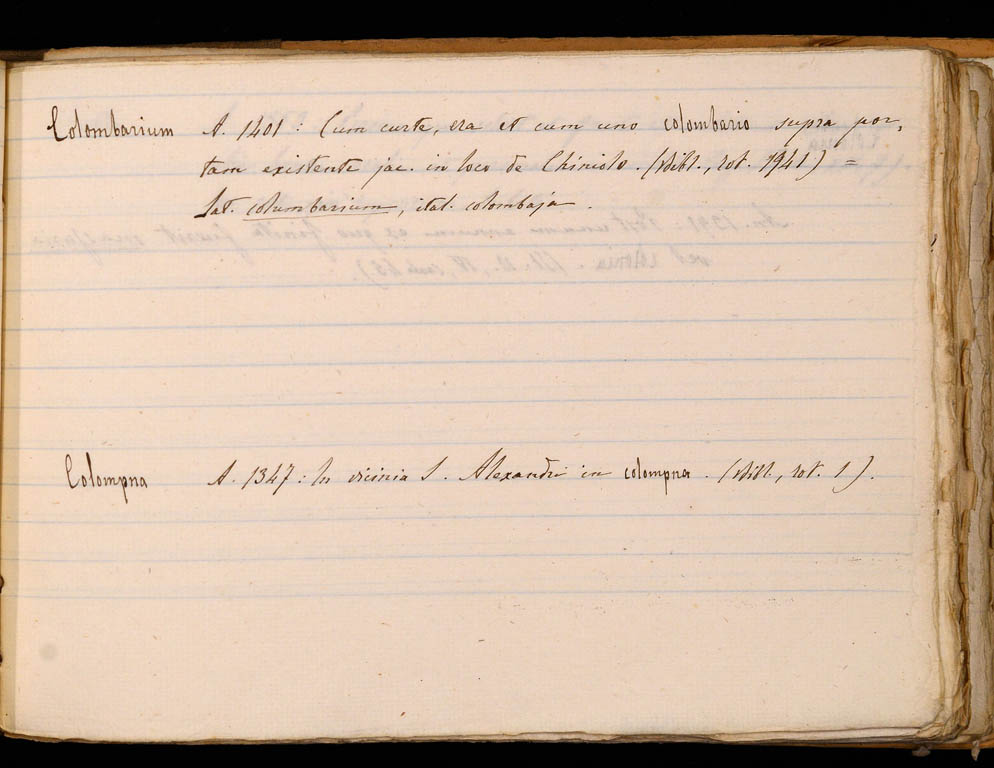 Colombarium A. 1401: Cum curte, era et cum uno colombario supra por,
tam existente jac. in loco de Chiniolo. (Bibl., rot. 1941) =
Lat. columbarium, ital. colombaja.
Colompna A. 1347: In vicinia S. Alexandri in colompna. (Bibl., rot. 1).